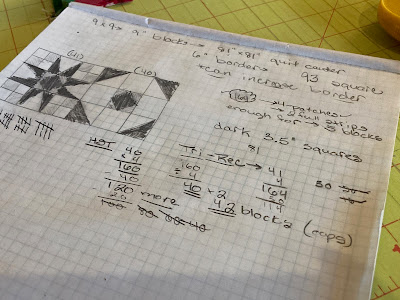 9x9= 9" blocks → 81"x81" quilt center
6" borders 93 square
*can increase border
(41) (40)
164 → 24 patches
2 full strips
enough for → 3 blocks
dark 3.5" squares
81
HST
40
x 4
160
- 40
120
- 20 more
100
Tri-Recs →
160
÷ 4
40 + 2
42 blocks (caps)
41
x 4
164
50